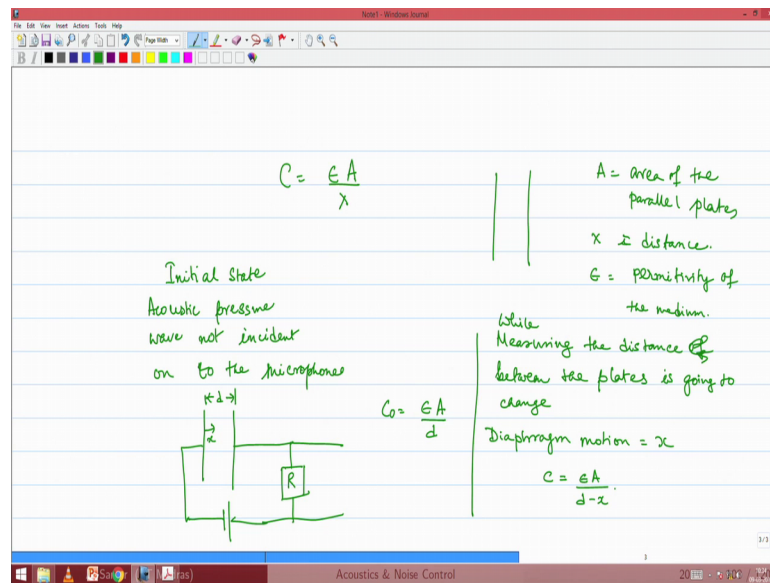 Note1 - Windows Journal
File Edit View Insert Actions Tools Help
Page Width
B I
C = ϵ A
x
A = area of the
parallel plates
x = distance.
ϵ = permitivity of
the medium.
Initial state
Acoustic pressure
wave not incident
on to the microphones
d
x
R
C₀ = ϵ A
d
while
Measuring the distance
between the plates is going to
change
Diaphragm motion = x
C = ϵA
d-x
3/3
3
Acoustics & Noise Control